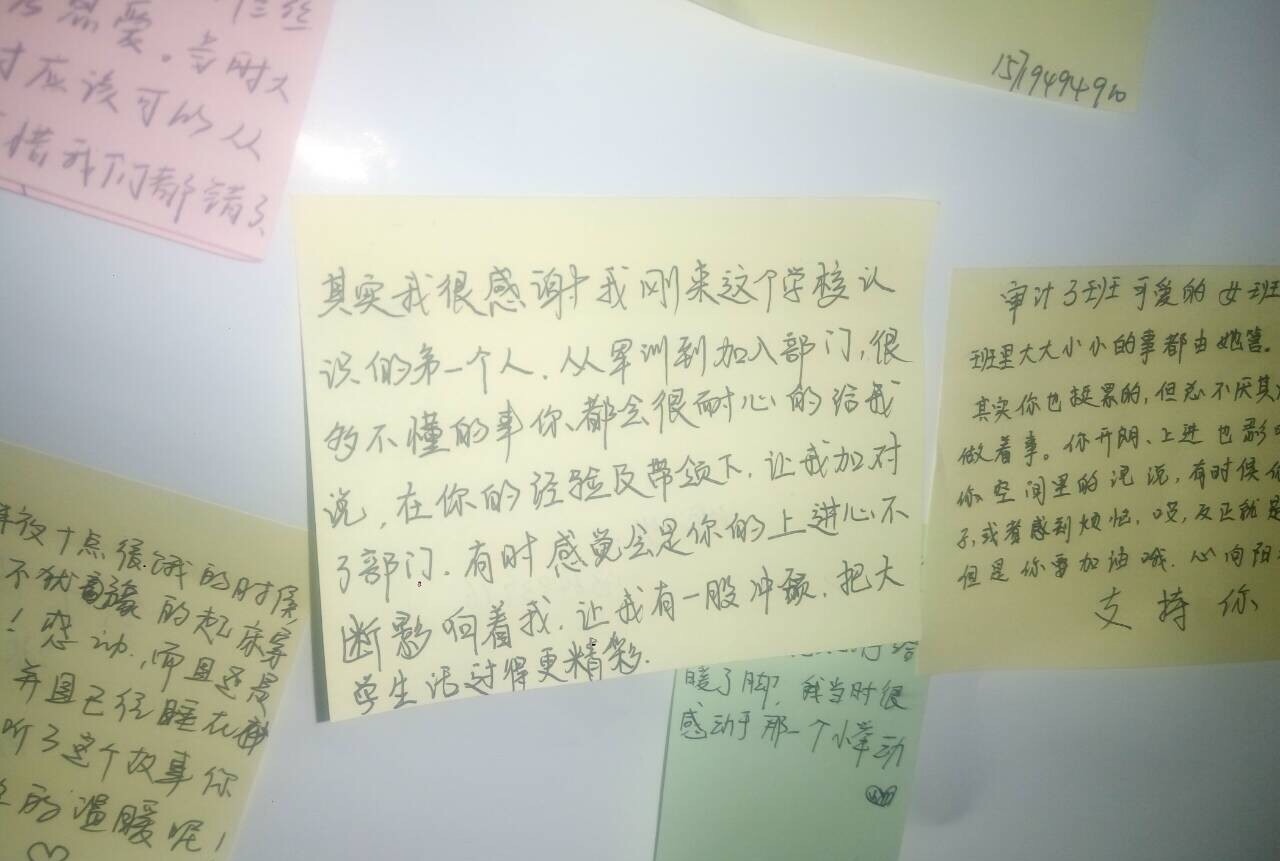 热爱。当时大
才应该可以从
惜我们都错了
其实我很感谢我刚来这个学校认
识的第一个人.从军训到加入部门,很
多不懂的事你都会很耐心的给我
说,在你的经验及带领下,让我加对
了部门.有时感觉会是你的上进心不
断影响着我.让我有一股冲动.把大
学生活过得更精彩.
审计3班可爱的女班
班里大大小小的事都由她管.
其实你也挺累的,但总不厌其
做着事。你开朗、上进也影
你空间里的说说,有时候
子,或者感到烦恼.哎,反正就是
但是你要加油哦.心向阳
支持你
夜十点很饿的时候
不犹豫的起床穿
!感动,而且还是
并且已经睡在
听了这个故事你
的温暖呢!
暖了脚,我当时很
感动于那一个小举动